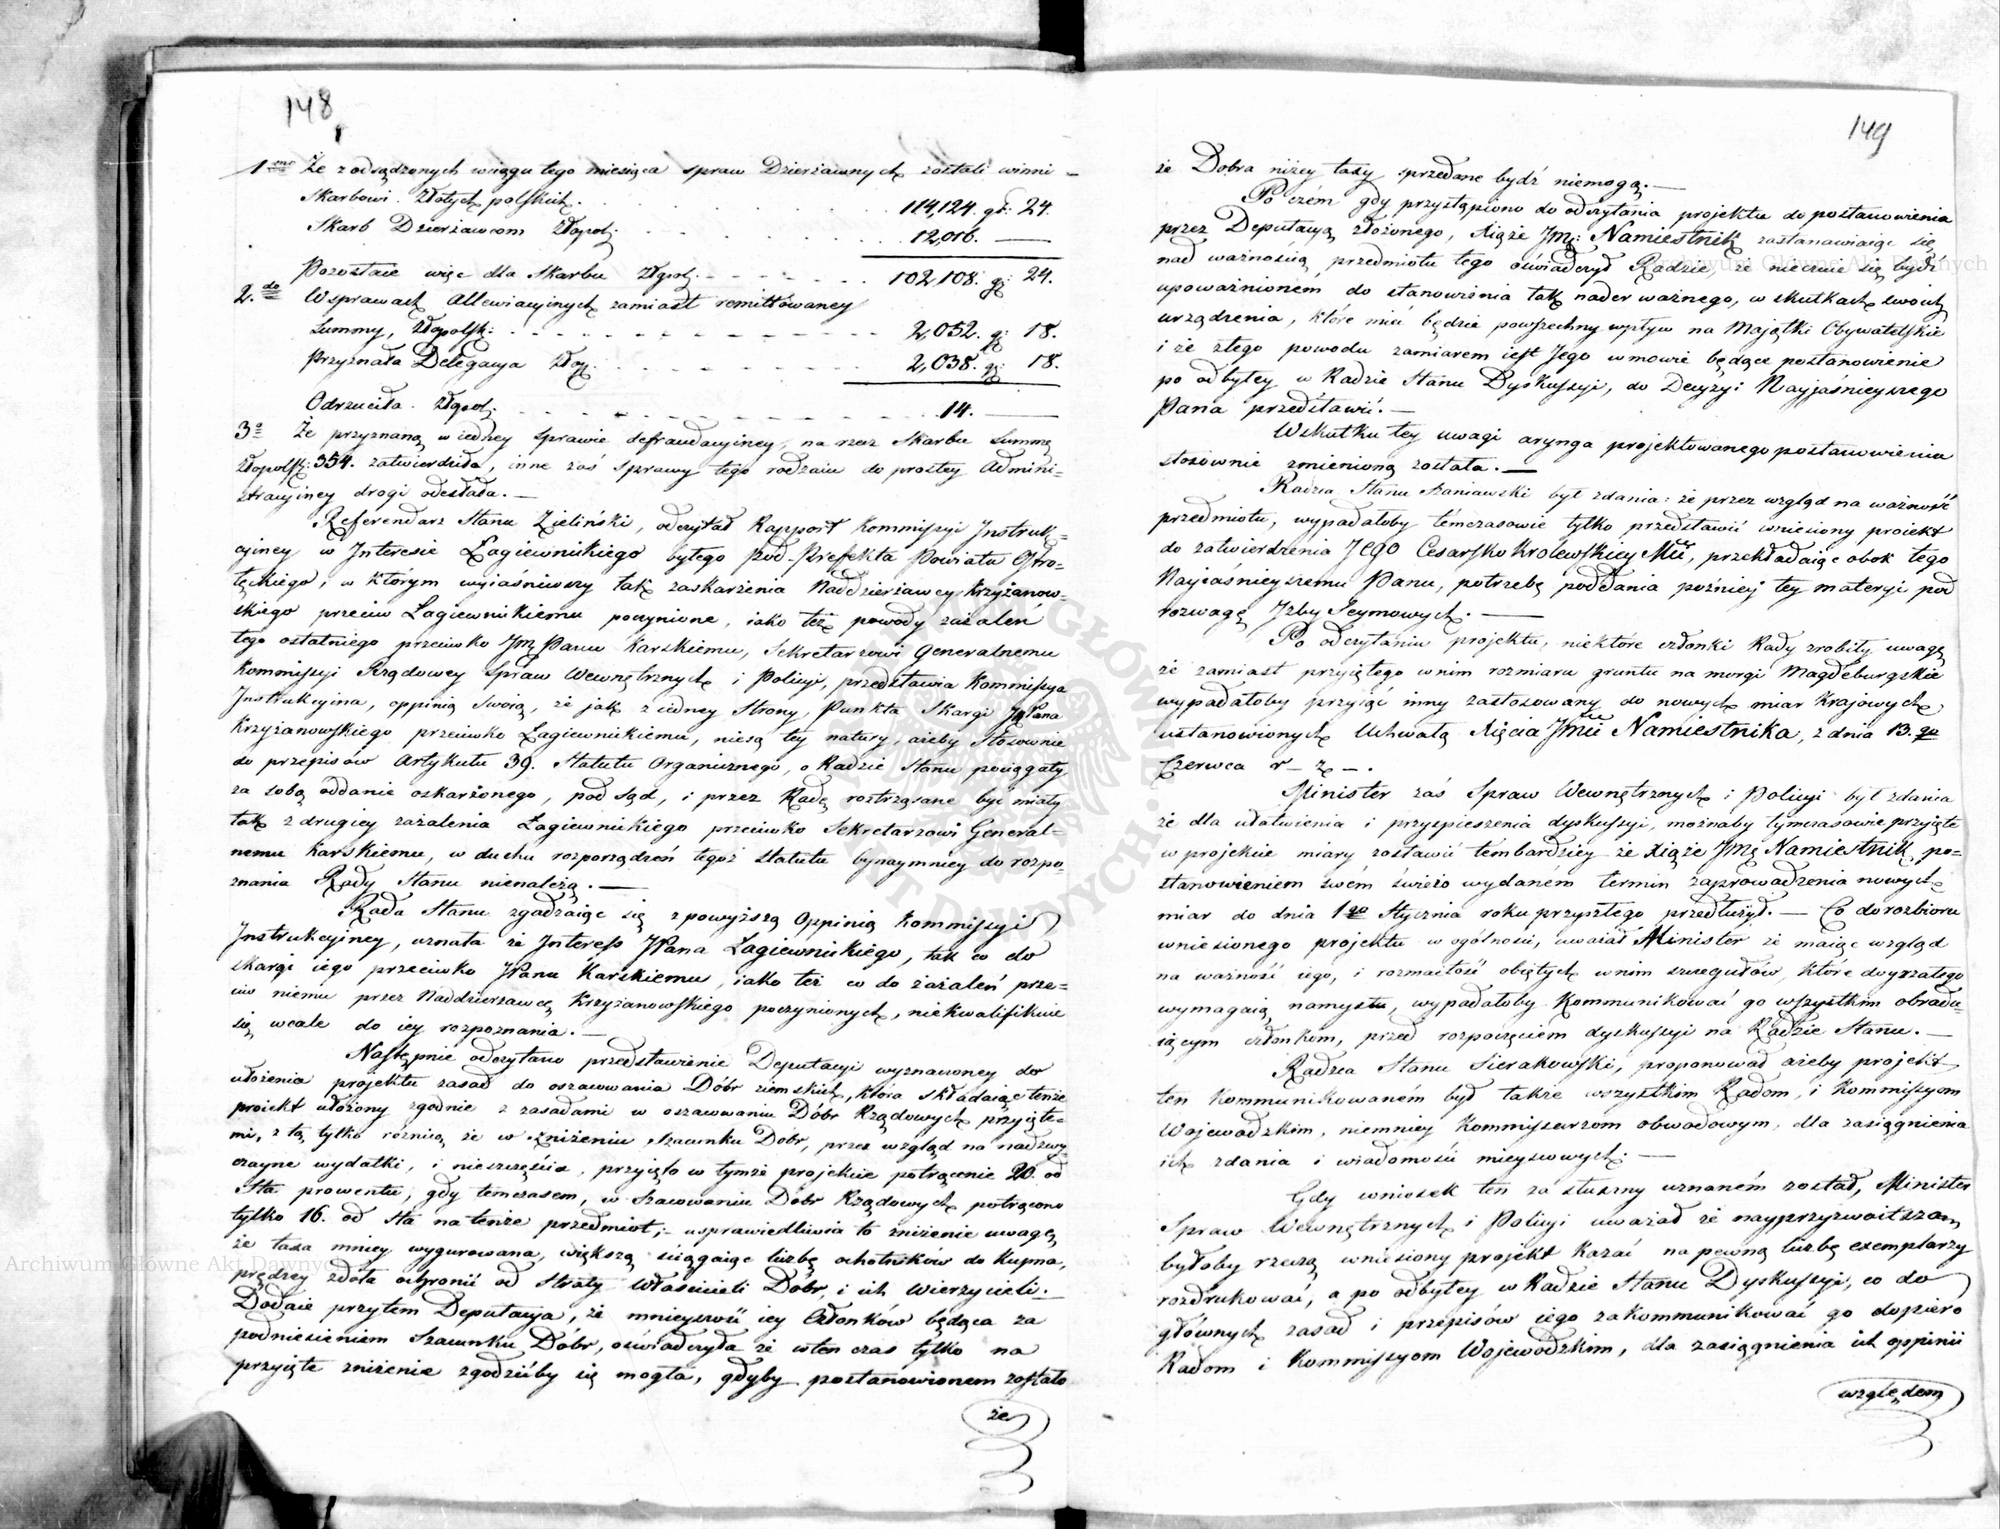 148
1mo Że z odsądzonych wciągu tego miesiąca spraw Dzierżawnych zostali winni
Skarbowi Złotych polskich . . . 114,124. gr: 24.
Skarb Dzierżawcom Złpol: . . . 12,016. —
Pozostaie więc dla Skarbu Złpol: . . . 102,108. gr: 24.
2do W sprawach Allewiacyinych zamiast remittowaney
Summy, Złpolsk: . . . 2,052. gr: 18.
Przyznała Delegacya Złp: . . . 2,038. gr: 18.
Odrzuciła Złpol: . . . 14. —
3o Że przyznaną w iedney sprawie defraudacyiney, na rzecz Skarbu Summę
Złopolsk: 354. zatwierdziła, inne zaś sprawy tego rodzaiu do prostey Admini-
stracyiney drogi odesłała. —
Referendarz Stanu Zieliński, odczytał Rapport Kommissyi Instruk-
cyiney w Interesie Łagiewnickiego byłego Pod-Prefekta Powiatu Ostro-
łęckiego, w którym wyiaśniwszy tak zaskarżenia Naddzierżawcy Krzyżanow-
skiego przeciw Łagiewnickiemu poczynione, iako też powody zażaleń
tego ostatniego przeciwko JmPanu Karskiemu, Sekretarzowi Generalnemu
Kommissyi Rządowey Spraw Wewnętrznych i Policyi, przedstawia Kommissya
Instrukcyina, oppinią swoią, że jak z iedney Strony, Punkta Skargi JPana
Krzyżanowskiego przeciwko Łagiewnickiemu, niesą tey natury, ażeby stosownie
do przepisów Artykułu 39. Statutu Organicznego, o Radzie Stanu pociągały
za sobą oddanie oskarżonego, pod sąd, i przez Radę roztrząsane być miały
tak z drugiey zażalenia Łagiewnickiego przeciwko Sekretarzowi General-
nemu Karskiemu, w duchu rozporządzeń tegoż Statutu bynaymniey do rozpo-
znania Rady Stanu nienależą. —
Rada Stanu zgadzaiąc się z powyższą Oppinią Kommissyi
Instrukcyiney, uznała że Interess JPana Łagiewnickiego, tak co do
skargi iego przeciwko JPanu Karskiemu, iako też co do zażaleń prze-
ciw niemu przez Naddzierżawcę Krzyżanowskiego poczynionych, niekwalifikuie
się wcale do iey rozpoznania. —
Następnie odczytano przedstawienie Deputacyi wyznaczoney do
ułożenia projektu zasad do oszacowania Dóbr ziemskich, która składaiąc tenże
proiekt ułożony zgodnie z zasadami w oszacowaniu Dóbr Rządowych przyięte-
mi, z tą tylko różnicą że w zniżeniu Szacunku Dóbr, przez wzgląd na nadzwy-
czayne wydatki, i nieszczęścia, przyięła w tymże projekcie potrącenie 20. od
Sta prowentu, gdy temczasem, w Szacowaniu Dóbr Rządowych potrącono
tylko 16. od sta na tenże przedmiot; usprawiedliwia to zniżenie uwagą
że taxa mniey wygurowana, większą ściągaiąc liczbę ochotników do Kupna,
prędzey zdoła ochronić od straty Właścicieli Dóbr, i ich Wierzycieli. —
Dodaie przytem Deputacya, że mnieyszość iey Członków będąca za
podniesieniem Szacunku Dóbr, oświadczyła że w ten czas tylko na
przyięte zniżenie zgodzićby się mogła, gdyby postanowionem zostało
że
149
że Dobra niżey taxy sprzedane bydź niemogą. —
Po czém gdy przystąpiono do odczytania projektu do postanowienia
przez Deputacyą złożonego, Xiąże Jmć Namiestnik zastanawiaiąc się
nad ważnością przedmiotu tego oświadczył Radzie że nieczuie się bydź
upoważnionem do stanowienia tak nader ważnego, w skutkach swoich
urządzenia, które mieć będzie powszechny wpływ na Majątki Obywatelskie
i że z tego powodu zamiarem iest Jego w mowie będące postanowienie
po odbytey w Radzie Stanu Dyskussyi, do Decyzyi Nayjaśnieyszego
Pana przedstawić. —
Wskutku tey uwagi arynga projektowanego postanowienia
stosownie zmienioną została. —
Radca Stanu Szaniawski był zdania: że przez wzgląd na ważność
przedmiotu, wypadałoby témczasowie tylko przedstawić wniesiony proiekt
do zatwierdzenia Jego Cesarsko Krolewskiey Mći, przekładaiąc obok tego
Nayiaśnieyszemu Panu, potrzebę poddania późniey tey materyi pod
rozwagę Izby Seymowych. —
Po odczytaniu projektu, niektóre członki Rady zrobiły uwagę
że zamiast przyiętego w nim rozmiaru gruntu na morgi Magdeburgskie
wypadałoby przyiąć inny zastosowany do nowych miar Krajowych
ustanowionych Uchwałą Xięcia Jmći Namiestnika, z dnia 13. go
Czerwca r – z – .
Minister zaś Spraw Wewnętrznych i Policyi był zdania
że dla ułatwienia i przyspieszenia dyskussyi, możnaby tymczasowie przyięte
w projekcie miary zostawić tembardziey że Xiąże Jmć Namiestnik po-
stanowieniem swém świeżo wydaném termin zaprowadzenia nowych
miar do dnia 1go Stycznia roku przyszłego przedłużył. — Co do rozbioru
wniesionego projektu w ogólności, uważał Minister że maiąc wzgląd
na ważność iego, i rozmaitość obiętych w nim szczegułów, które doyrzałego
wymagaią namysłu, wypadałoby Kommunikować go wszystkim obradu-
iącym członkom, przed rozpoczęciem dyskussyi na Radzie Stanu. —
Radca Stanu Sierakowski, proponował ażeby projekt
ten Kommunikowaném był także wszystkim Radom, i Kommissyom
Wojewodzkim, niemniey Kommissarzom obwodowym, dla zasiągnienia
ich zdania i wiadomości mieyscowych. —
Gdy wniosek ten za słuszny uznaném został, Minister
Spraw Wewnętrznych i Policyi uważał że nayprzyzwoitszą
byłoby rzeczą wniesiony projekt kazać na pewną liczbę exemplarzy
rozdrukować, a po odbytey w Radzie Stanu Dyskussyi, co do
głównych zasad i przepisów iego zakommunikować go dopiero
Radom i Kommissyom Wojewodzkim, dla zasiągnienia ich oppinii
względem
Archiwum Główne Akt Dawnych
Archiwum Główne Akt Dawnych